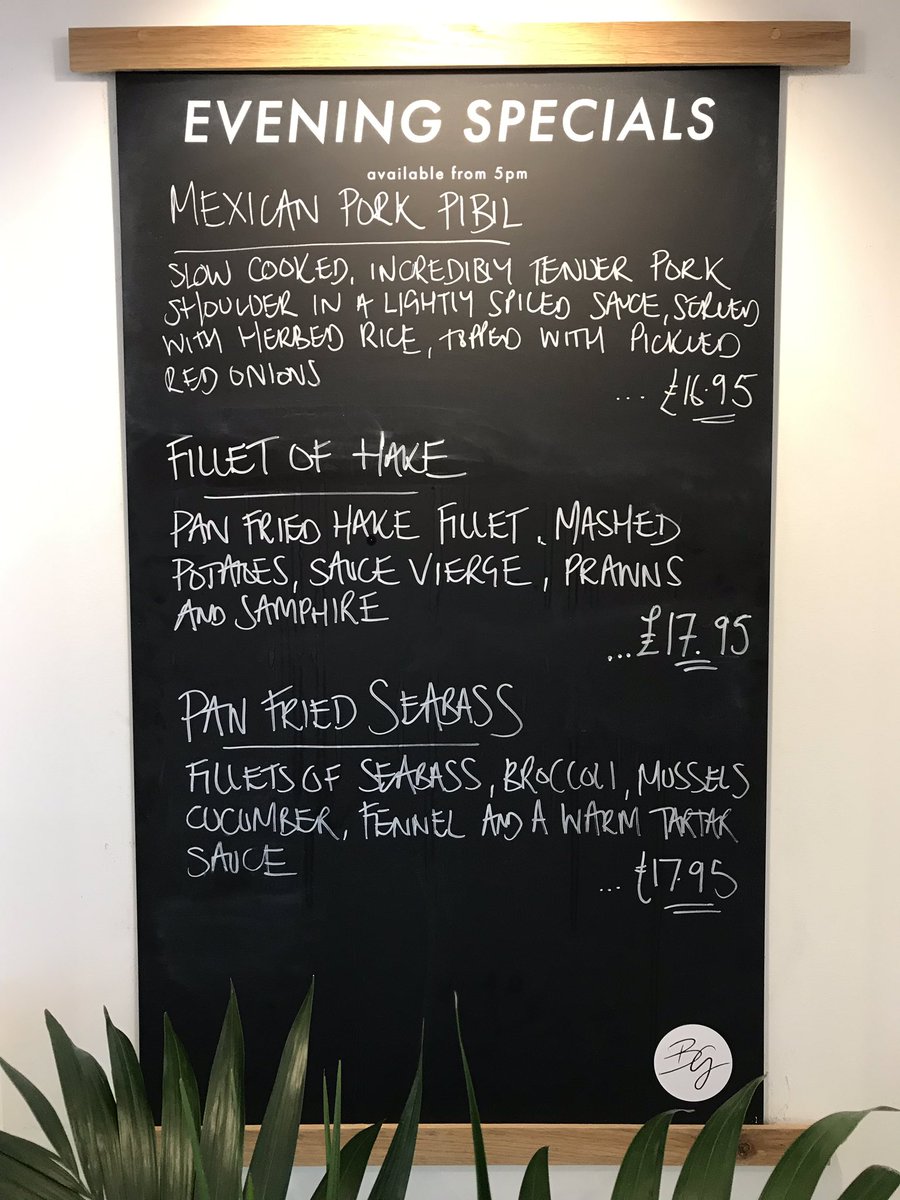 EVENING SPECIALS
available from 5pm
MEXICAN PORK PIBIL
SLOW COOKED, INCREDIBLY TENDER PORK
SHOULDER IN A LIGHTLY SPICED SAUCE, SERVED
WITH HERBED RICE, TOPPED WITH PICKLED
RED ONIONS
... £16.95
FILLET OF HAKE
PAN FRIED HAKE FILLET, MASHED
POTATOES, SAUCE VIERGE, PRAWNS
AND SAMPHIRE
... £17.95
PAN FRIED SEABASS
FILLETS OF SEABASS, BROCCOLI, MUSSELS
CUCUMBER, FENNEL AND A WARM TARTAR
SAUCE
... £17.95
BG